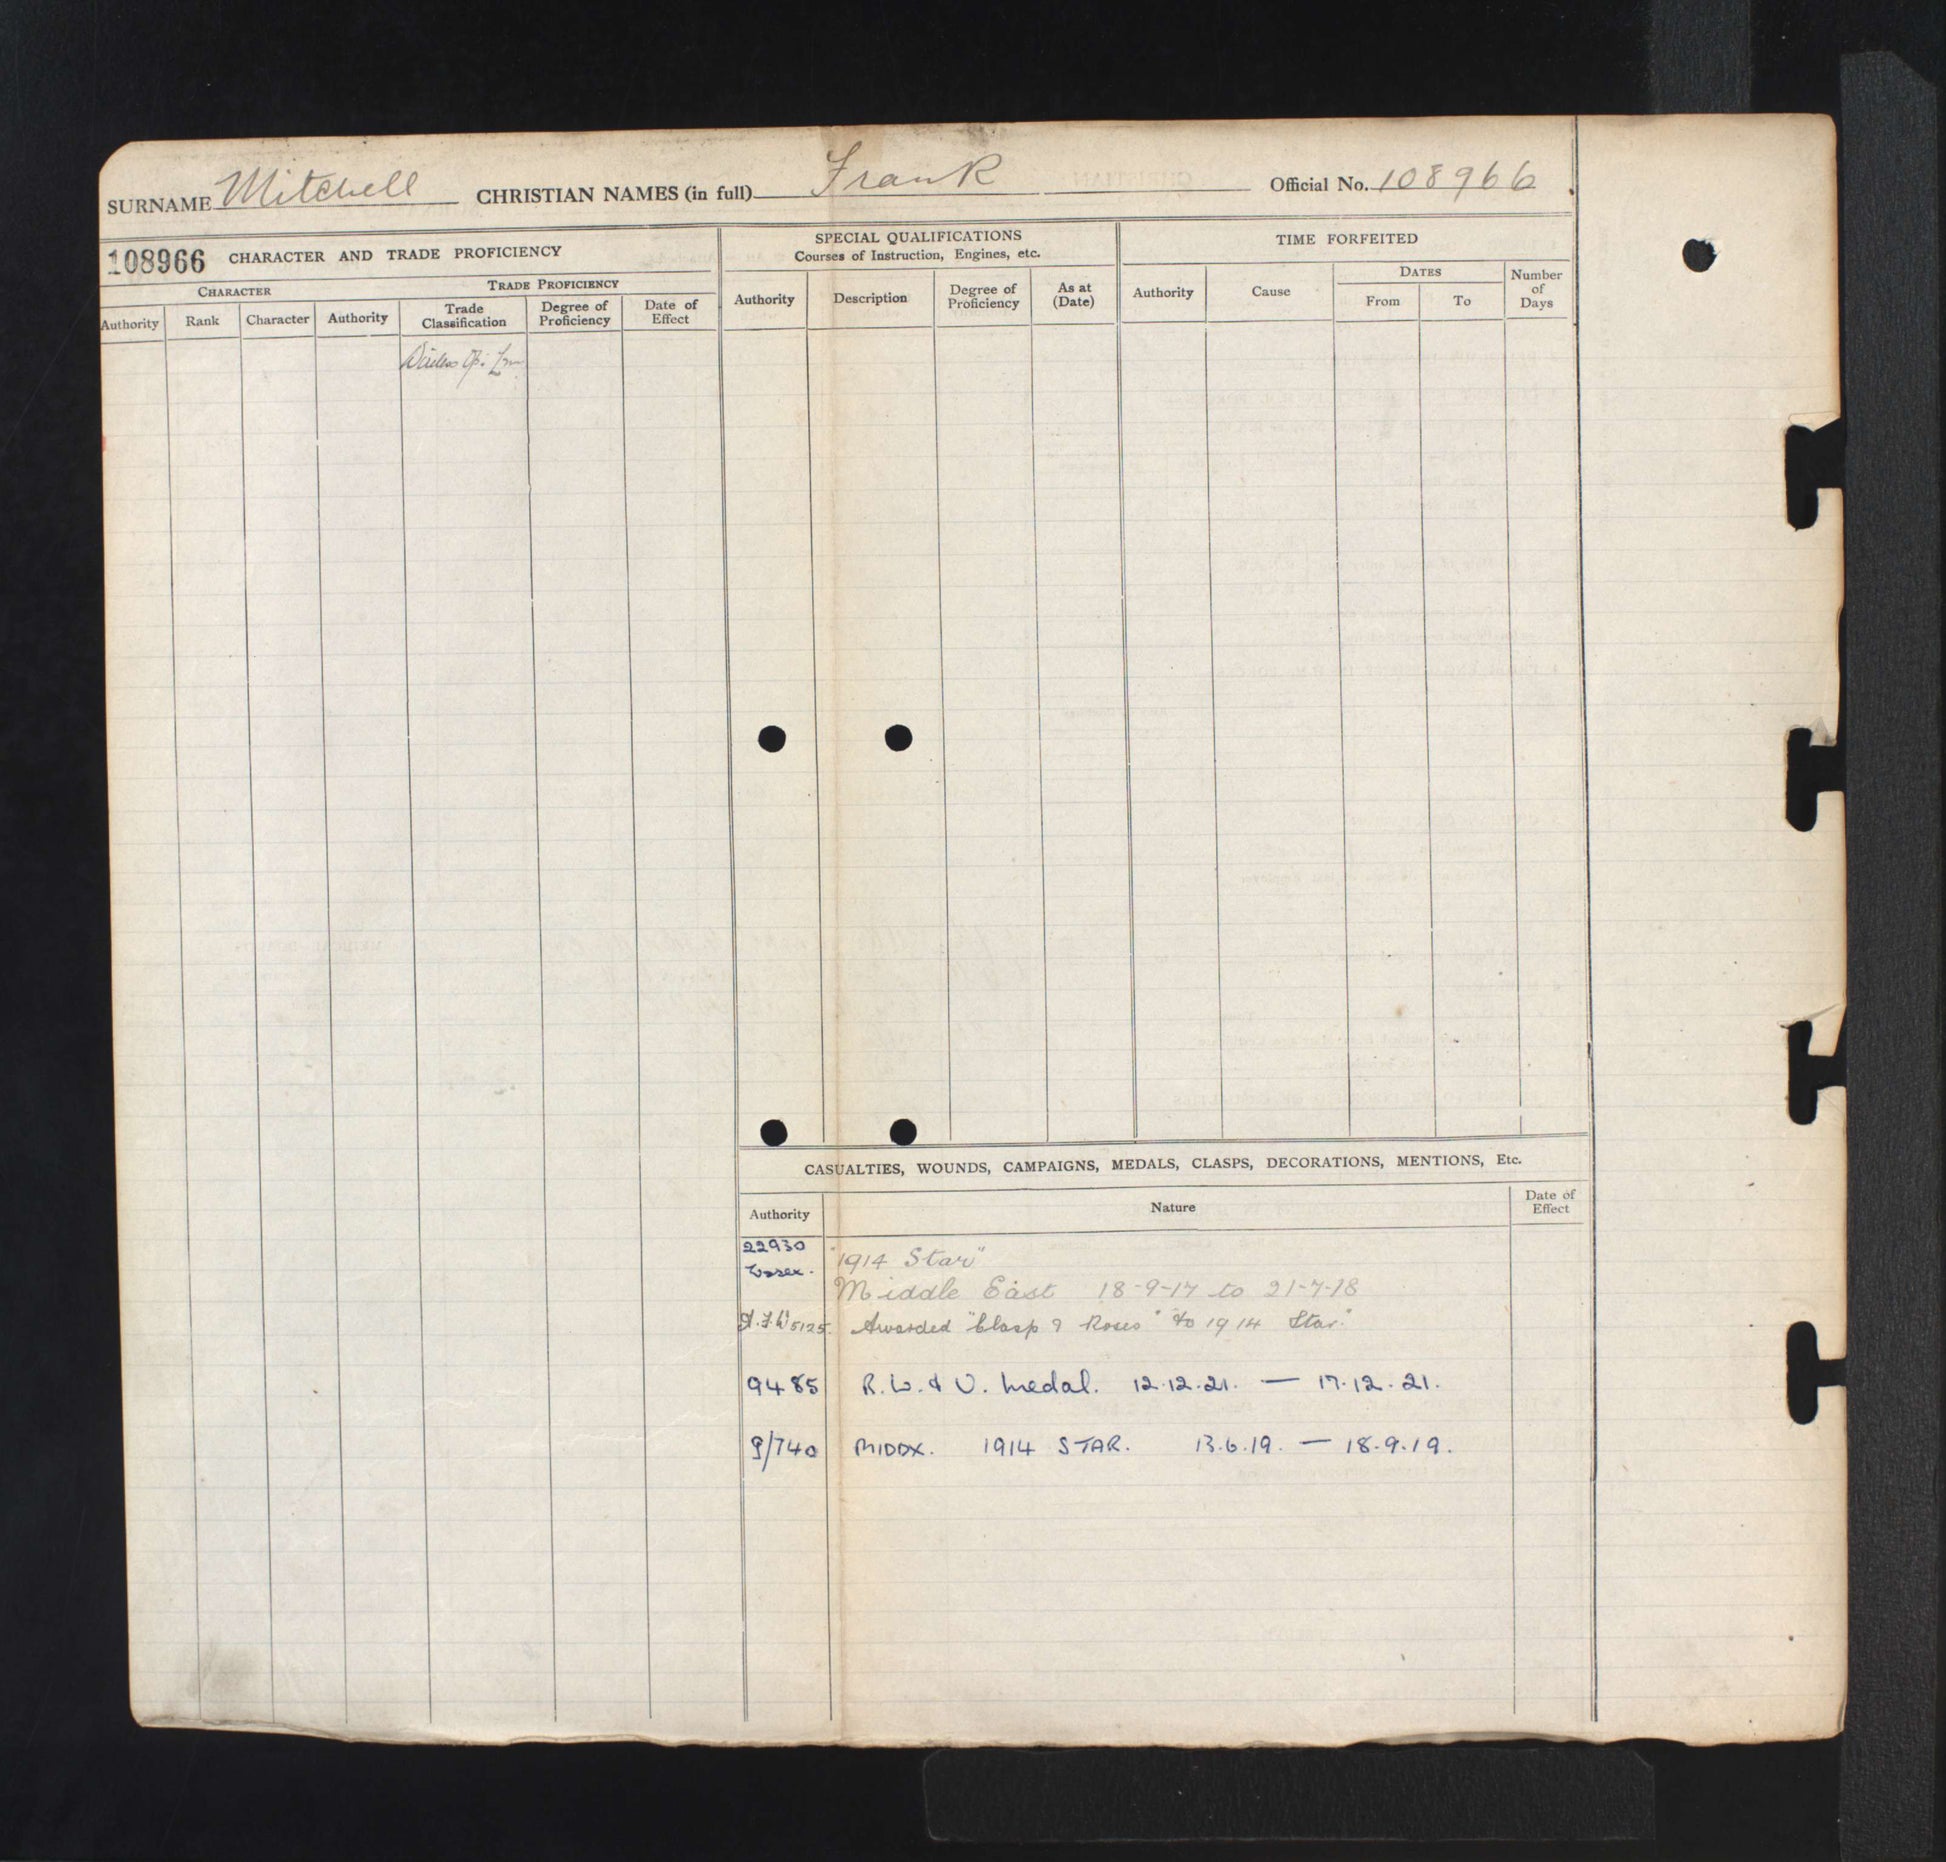 SURNAME Mitchell CHRISTIAN NAMES (in full) Frank Official No. 108966
108966 CHARACTER AND TRADE PROFICIENCY
CHARACTER TRADE PROFICIENCY
Authority Rank Character Authority Trade Classification Degree of Proficiency Date of Effect
Wireless Op.
SPECIAL QUALIFICATIONS
Courses of Instruction, Engines, etc.
Authority Description Degree of Proficiency As at (Date)
TIME FORFEITED
Authority Cause DATES From To Number of Days
CASUALTIES, WOUNDS, CAMPAIGNS, MEDALS, CLASPS, DECORATIONS, MENTIONS, Etc.
Authority Nature Date of Effect
22930 Essex. "1914 Star"
Middle East 18-9-17 to 21-7-18
A.F.W 5125. Awarded "Clasp & Roses" to 1914 Star."
9485 B.W. & V. Medal. 12.12.21. — 17.12.21.
9/740 MIDDX. 1914 STAR. 13.6.19. — 18.9.19.